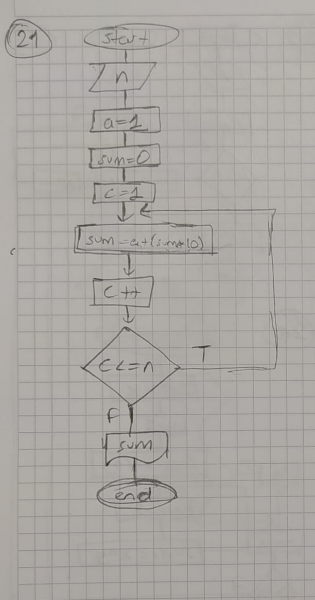 21
start
n
a=1
sum=0
c=1
sum=a+(sum*10)
c++
c<=n
T
F
sum
end